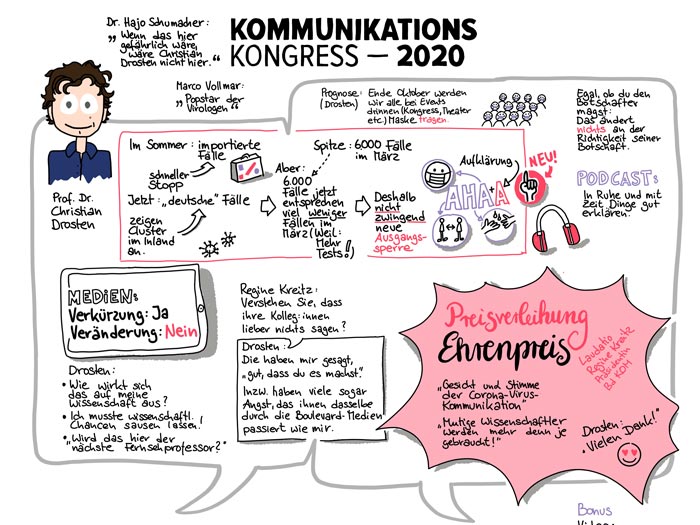 Dr. Hajo Schumacher:
„Wenn das hier
gefährlich wäre,
wäre Christian
Drosten nicht hier.“
KOMMUNIKATIONS
KONGRESS — 2020
Marco Vollmar:
„Popstar der
Virologen“
Prof. Dr.
Christian
Drosten
Prognose: Ende Oktober werden
(Drosten) wir alle bei Events
drinnen (Kongress, Theater
etc.) Maske tragen.
Egal, ob du den
Botschafter
magst:
Das ändert
nichts an der
Richtigkeit seiner
Botschaft.
PODCAST:
In Ruhe und mit
Zeit Dinge gut
erklären.
Im Sommer: importierte
Fälle
schneller
Stopp
Jetzt: „deutsche“ Fälle
zeigen
Cluster
im Inland
an.
Aber:
6.000
Fälle jetzt
entsprechen
viel weniger
Fällen im
März (Weil:
Mehr
Tests!)
Spitze: 6000 Fälle
im März
Deshalb
nicht
zwingend
neue
Ausgangs-
sperre
Aufklärung
NEU!
AHAA
MEDiEN:
Verkürzung: Ja
Veränderung: Nein
Drosten:
• Wie wirkt sich
das auf meine
Wissenschaft aus?
• Ich musste wissenschaftl.
Chancen sausen lassen!
• „Wird das hier der
nächste Fernsehprofessor?“
Regine Kreitz:
Verstehen Sie, dass
ihre Kolleg:innen
lieber nichts sagen?
Drosten:
Die haben mir gesagt,
„gut, dass du es machst“.
Inzw. haben viele sogar
Angst, das ihnen dasselbe
durch die Boulevard-Medien
passiert wie mir.
Preisverleihung
Ehrenpreis
Laudatio
Regine Kreitz
Präsidentin
BdKOM
„Gesicht und Stimme
der Corona-Virus-
Kommunikation“
„Mutige Wissenschaftler
werden mehr denn je
gebraucht!“
Drosten:
„Vielen Dank!“
Bonus